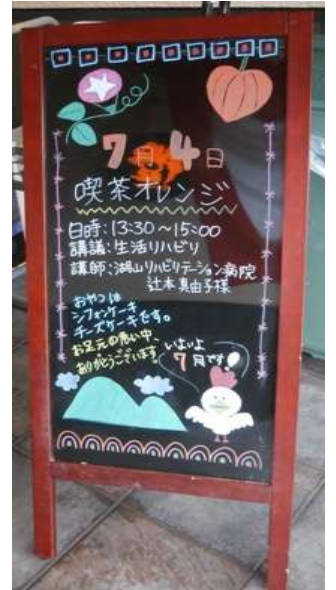 7月4日
喫茶オレンジ
日時:13:30～15:00
講議:生活リハビリ
講師:湖山リハビリテーション病院
辻本真由子様
おやつは
シフォンケーキ
チーズケーキです。
お足元の悪い中、
ありがとうございます。
いよいよ
7月です!